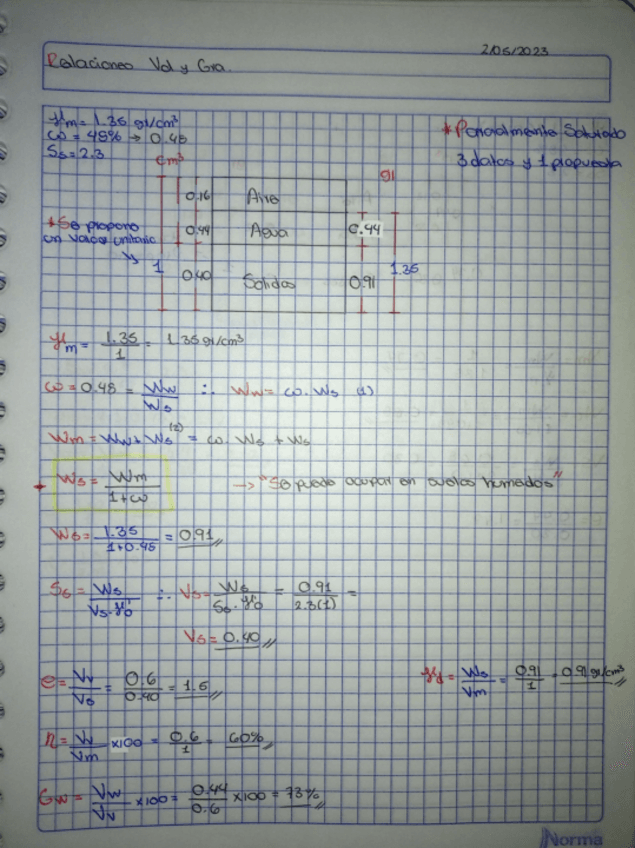 2/05/2023
Relaciones Vol y Gra.
γm = 1.35 gr/cm³
ω = 48% → 0.48
Ss = 2.3
* Parcialmente Saturado
3 datos y 1 propuesta
cm³
gr
0.16 Aire
* Se propone
un valor unitario
0.44 Agua 0.44
1
0.40 Solidos 0.91
1.35
γm = 1.35/1 = 1.35 gr/cm³
ω = 0.48 = Ww/Ws ∴ Ww = ω . Ws (1)
Wm = Ww + Ws (2) = ω . Ws + Ws
* Ws = Wm/1+ω → "Se puede ocupar en suelos humedos"
Ws = 1.35/1+0.48 = 0.91
Ss = Ws/Vs.γo ∴ Vs = Ws/Ss.γo = 0.91/2.3(1) =
Vs = 0.40
e = Vv/Vs = 0.6/0.40 = 1.5
γd = Ws/Vm = 0.91/1 = 0.91 gr/cm³
n = Vv/Vm x100 = 0.6/1 = 60%
Gw = Vw/Vv x100 = 0.44/0.6 x100 = 73%
Norma